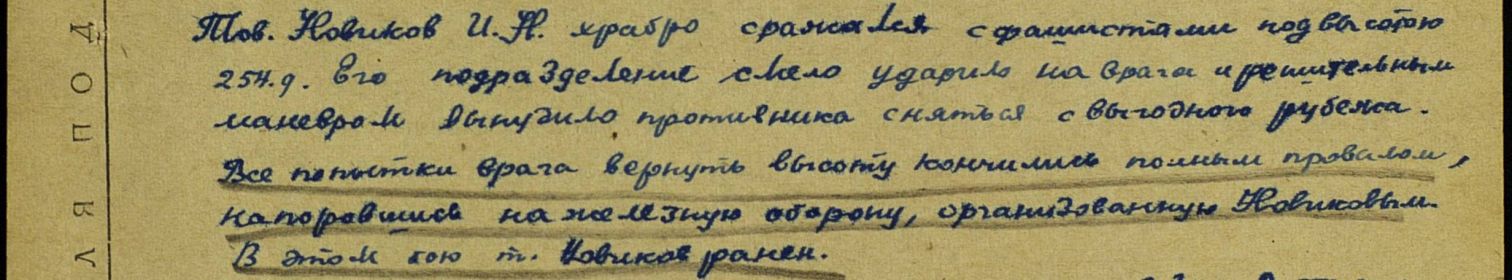 Тов. Новиков И.Н. храбро сражался с фашистами под высотою
254.9. Его подразделение смело ударило на врага и решительным
маневром вынудило противника сняться с выгодного рубежа.
Все попытки врага вернуть высоту кончились полным провалом,
напоровшись на железную оборону, организованную Новиковым.
В этом бою т. Новиков ранен.
ЛЯ ПОД